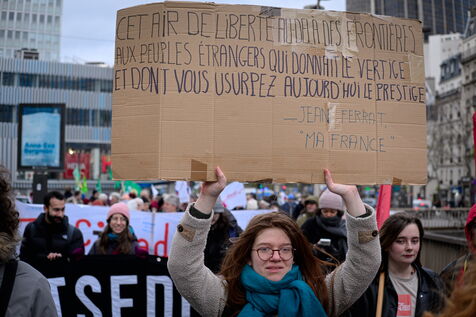 CET AIR DE LIBERTÉ AU-DELÀ DES FRONTIÈRES
AUX PEUPLES ÉTRANGERS QUI DONNAIT LE VERTIGE
ET DONT VOUS USURPEZ AUJOURD'HUI LE PRESTIGE
— JEAN FERRAT
"MA FRANCE"